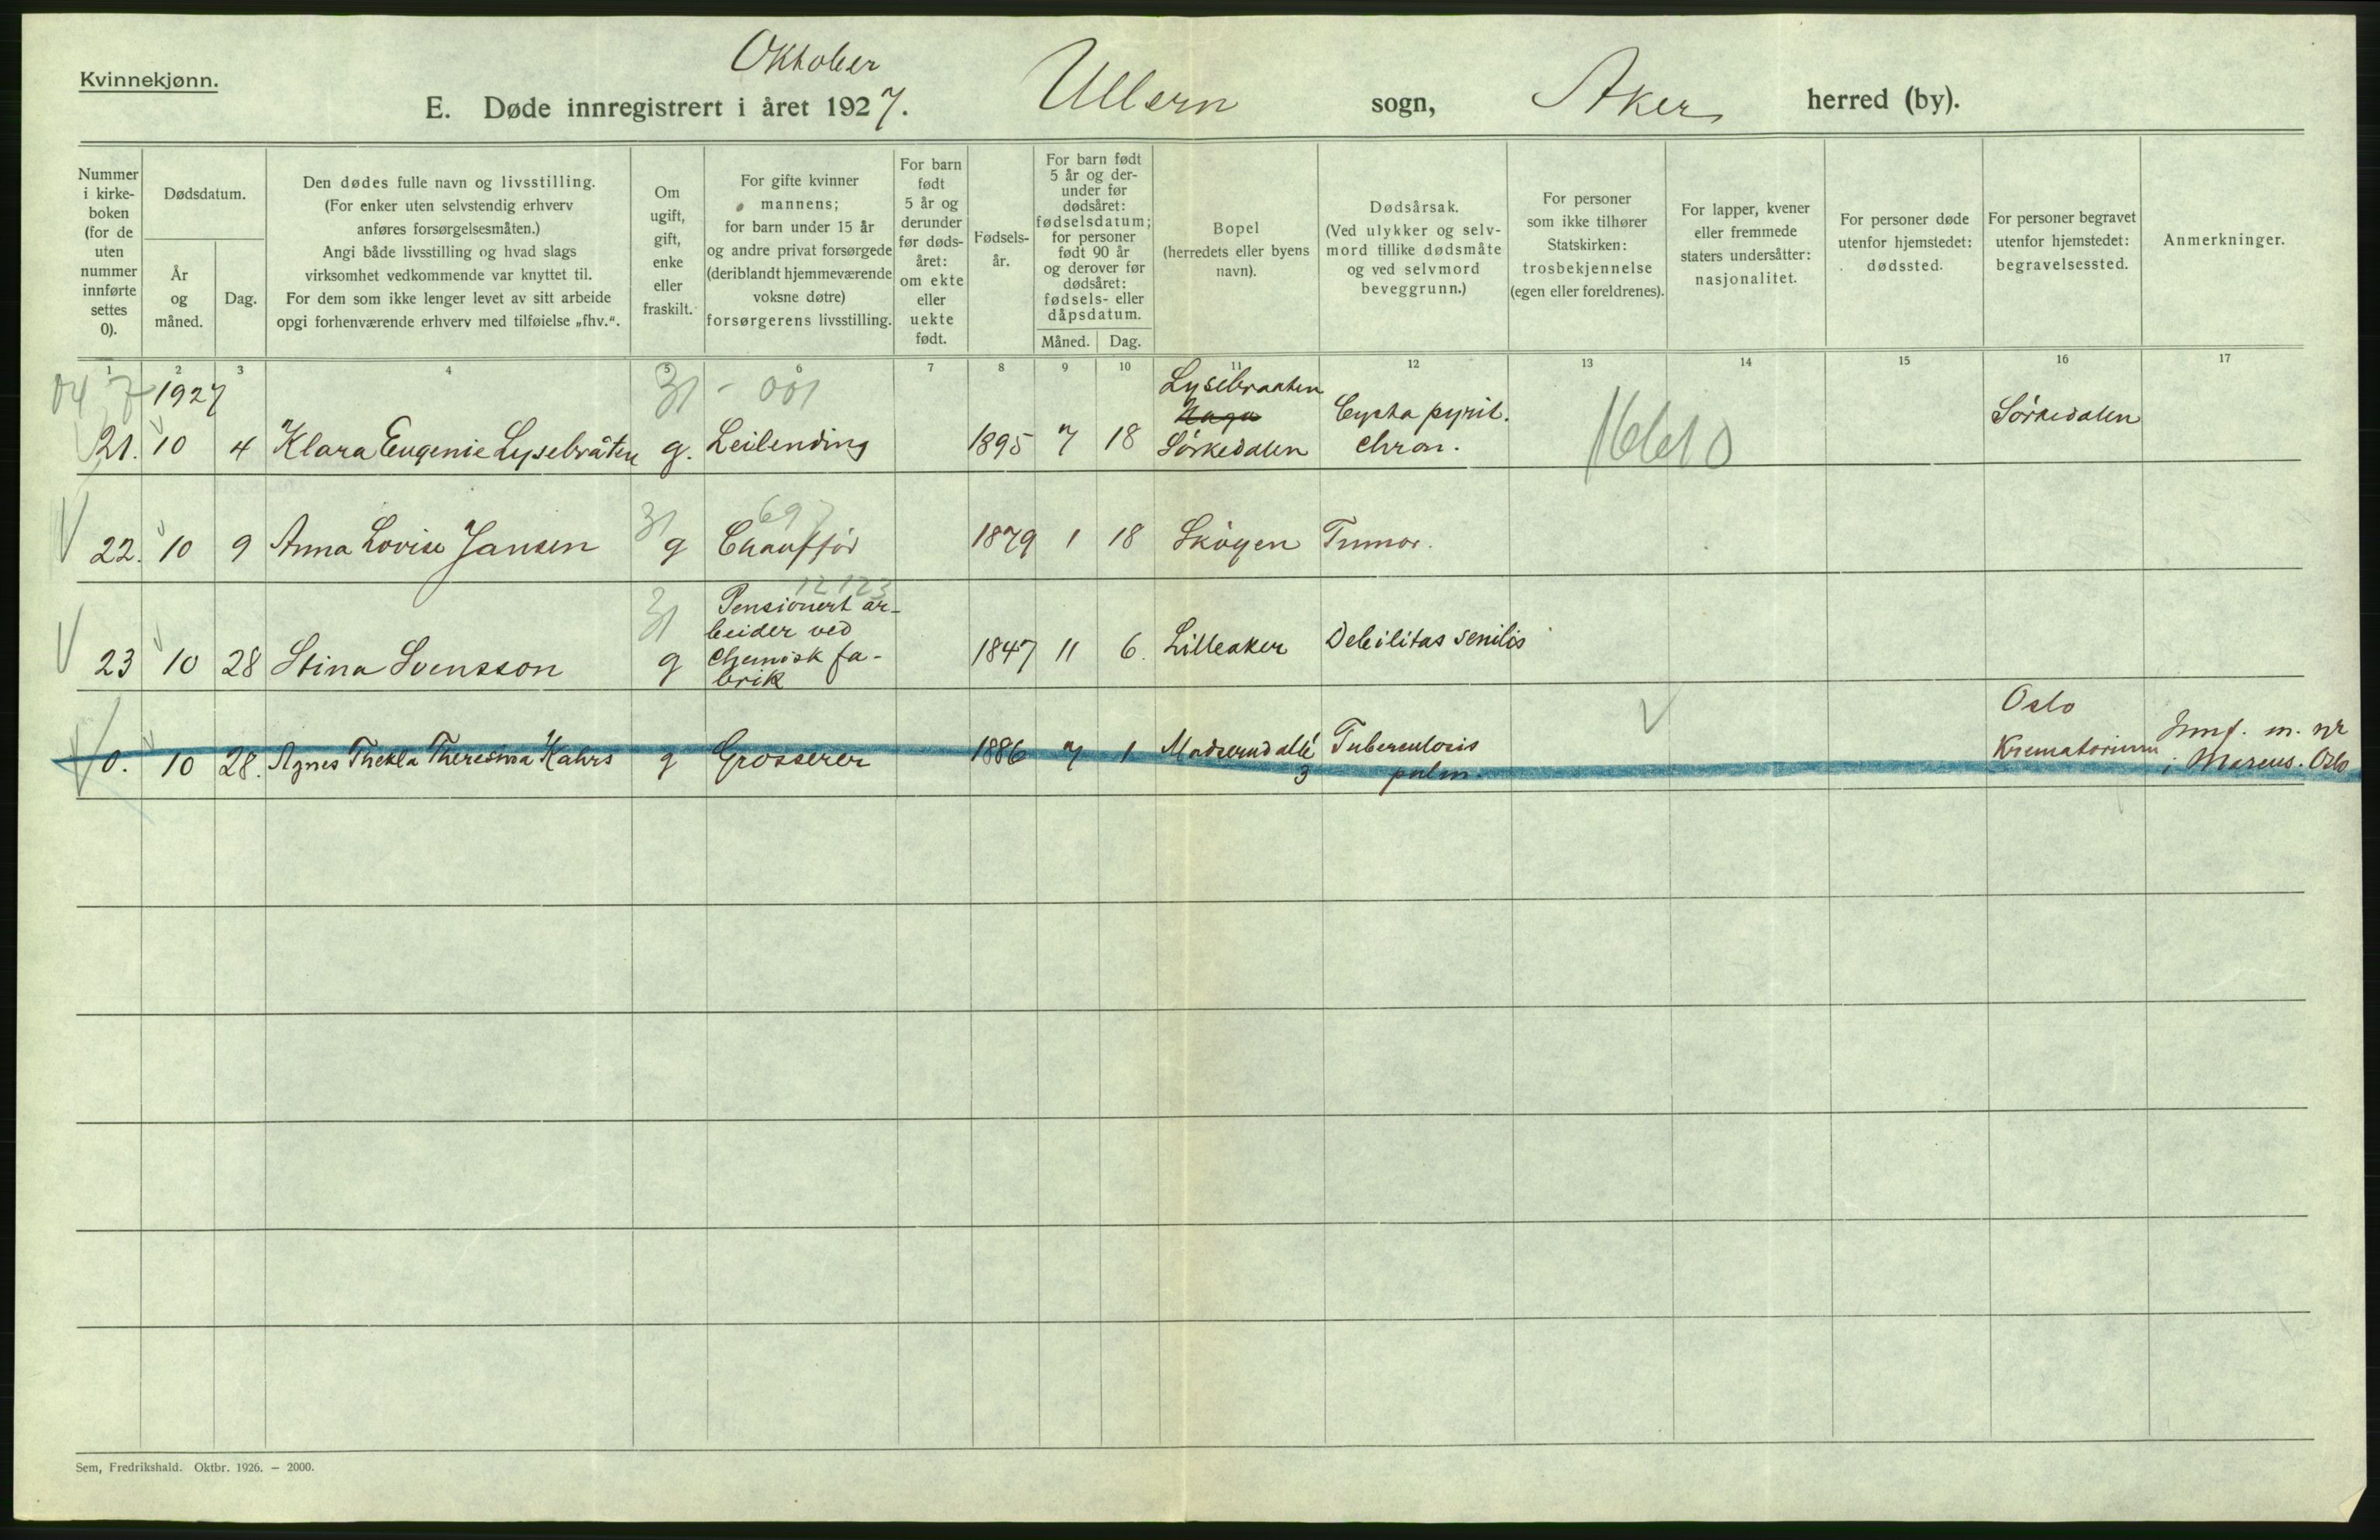 Kvinnekjønn.
Oktober
E. Døde innregistrert i året 1927. Ullern sogn, Aker herred (by).
Nummer i kirke-boken (for de uten nummer innførte settes 0).
Dødsdatum.
År og måned.
Dag.
Den dødes fulle navn og livsstilling.
(For enker uten selvstendig erhverv
anføres forsørgelsesmåten.)
Angi både livsstilling og hvad slags
virksomhet vedkommende var knyttet til.
For dem som ikke lenger levet av sitt arbeide
opgi forhenværende erhverv med tilføielse „fhv.“.
Om
ugift,
gift,
enke
eller
fraskilt.
For gifte kvinner
mannens;
for barn under 15 år
og andre privat forsørgede
(deriblandt hjemmeværende
voksne døtre)
forsørgerens livsstilling.
For barn
født
5 år og
derunder
før døds-
året:
om ekte
eller
uekte
født.
Fødsels-
år.
For barn født
5 år og der-
under før
dødsåret:
fødselsdatum;
for personer
født 90 år
og derover før
dødsåret:
fødsels- eller
dåpsdatum.
Måned. Dag.
Bopel
(herredets eller byens
navn).
Dødsårsak.
(Ved ulykker og selv-
mord tillike dødsmåte
og ved selvmord
beveggrunn.)
For personer
som ikke tilhører
Statskirken:
trosbekjennelse
(egen eller foreldrenes).
For lapper, kvener
eller fremmede
staters undersåtter:
nasjonalitet.
For personer døde
utenfor hjemstedet:
dødssted.
For personer begravet
utenfor hjemstedet:
begravelsessted.
Anmerkninger.
1 2 3 4 5 6 7 8 9 10 11 12 13 14 15 16 17
04 7 1927 31 - 001 Lysebraaten
21. 10 4 Klara Eugenie Lysebråten g. Leilending 1895 7 18 Sørkedalen Cysta pyrit. chron. 16610 Sørkedalen
31 697
22. 10 9 Anna Lovise Jansen g Chauffør 1879 1 18 Skøyen Tumor.
31 12123
23 10 28 Stina Svensson g Pensionert ar-
beider ved
chemisk fa-
brik
1847 11 6. Lilleaker Debilitas senilis
0. 10 28. Agnes Thekla Theresina Kahrs g Grosserer 1886 7 1 Madserud allé 3 Tuberculosis pulm. Oslo
Krematorium
Innf. m. nr
i Marcus. Oslo
Sem, Fredrikshald. Oktbr. 1926. — 2000.